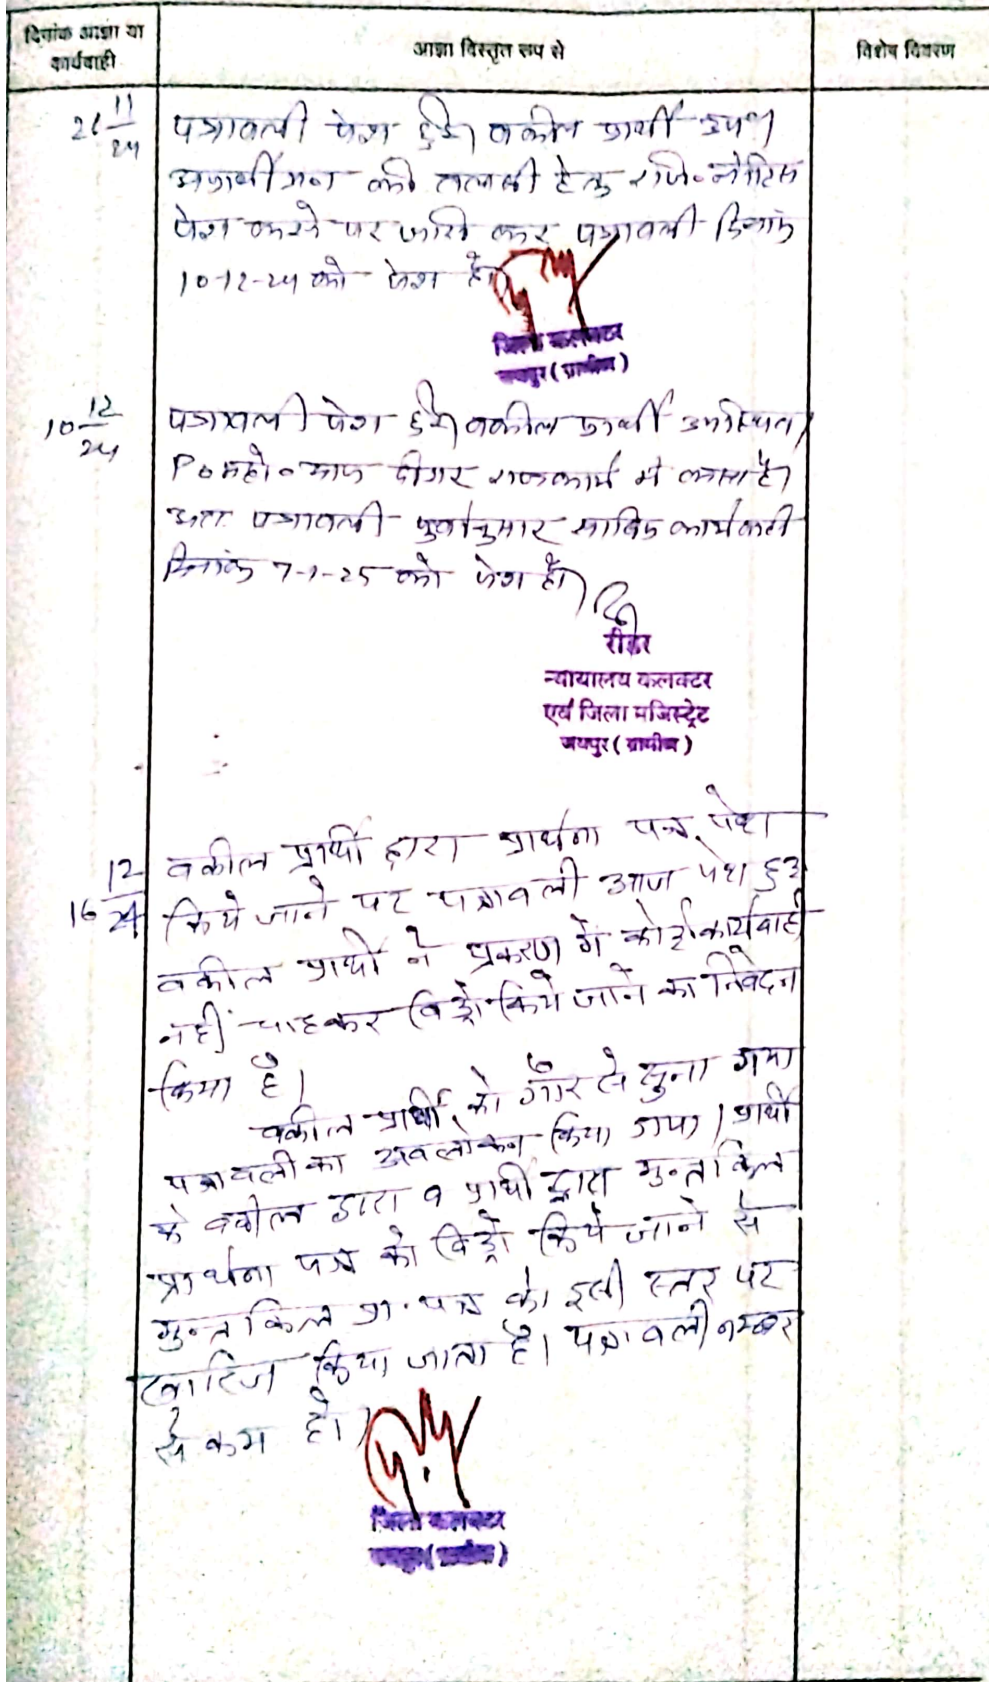 दिनांक आज्ञा या
कार्यवाही
आज्ञा विस्तृत रूप से
विशेष विवरण
11
24
पत्रावली पेश हुई। वकील प्रार्थी उप०।
अप्रार्थीगण की तलबी हेतु रजि० नोटिस
पेश करने पर जारी कर पत्रावली दिनांक
10-12-24 को पेश हो।
जिला कलक्टर
जयपुर (ग्रामीण)
10 12
24
पत्रावली पेश हुई। वकील प्रार्थी उपस्थित।
P० महो० दीगर राजकार्य में व्यस्त है।
अतः पत्रावली कार्यवाही
दिनांक 7-1-25 को पेश हो।
रीडर
न्यायालय कलक्टर
एवं जिला मजिस्ट्रेट
जयपुर (ग्रामीण)
16 12
24
वकील प्रार्थी द्वारा प्रार्थना पत्र पेश
किये जाने पर पत्रावली आज पेश हुई
वकील प्रार्थी ने प्रकरण में कोई कार्यवाही
नहीं चाहकर विड्रो किये जाने का निवेदन
किया है।
वकील प्रार्थी को गौर से सुना गया
पत्रावली का अवलोकन किया गया। प्रार्थी
के वकील द्वारा व प्रार्थी द्वारा मुन्तकिल
प्रार्थना पत्र को विड्रो किये जाने से
मुन्तकिल प्रा. पत्र को इसी स्तर पर
खारिज किया जाता है। पत्रावली नम्बर
से कम हो।
जिला कलक्टर
जयपुर (ग्रामीण)